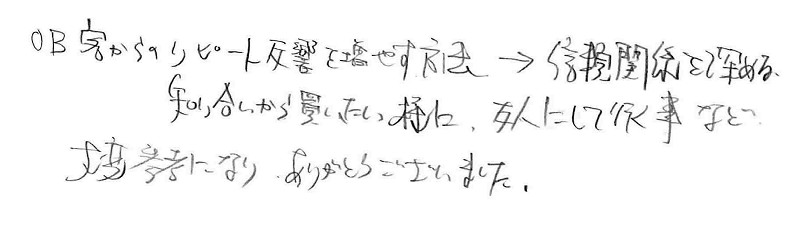 OB客からのリピート反響を増やす方法 → 信頼関係を深める。
知り合いから買いたい様に、友人にして行く事など。
大変参考になり、ありがとうございました。